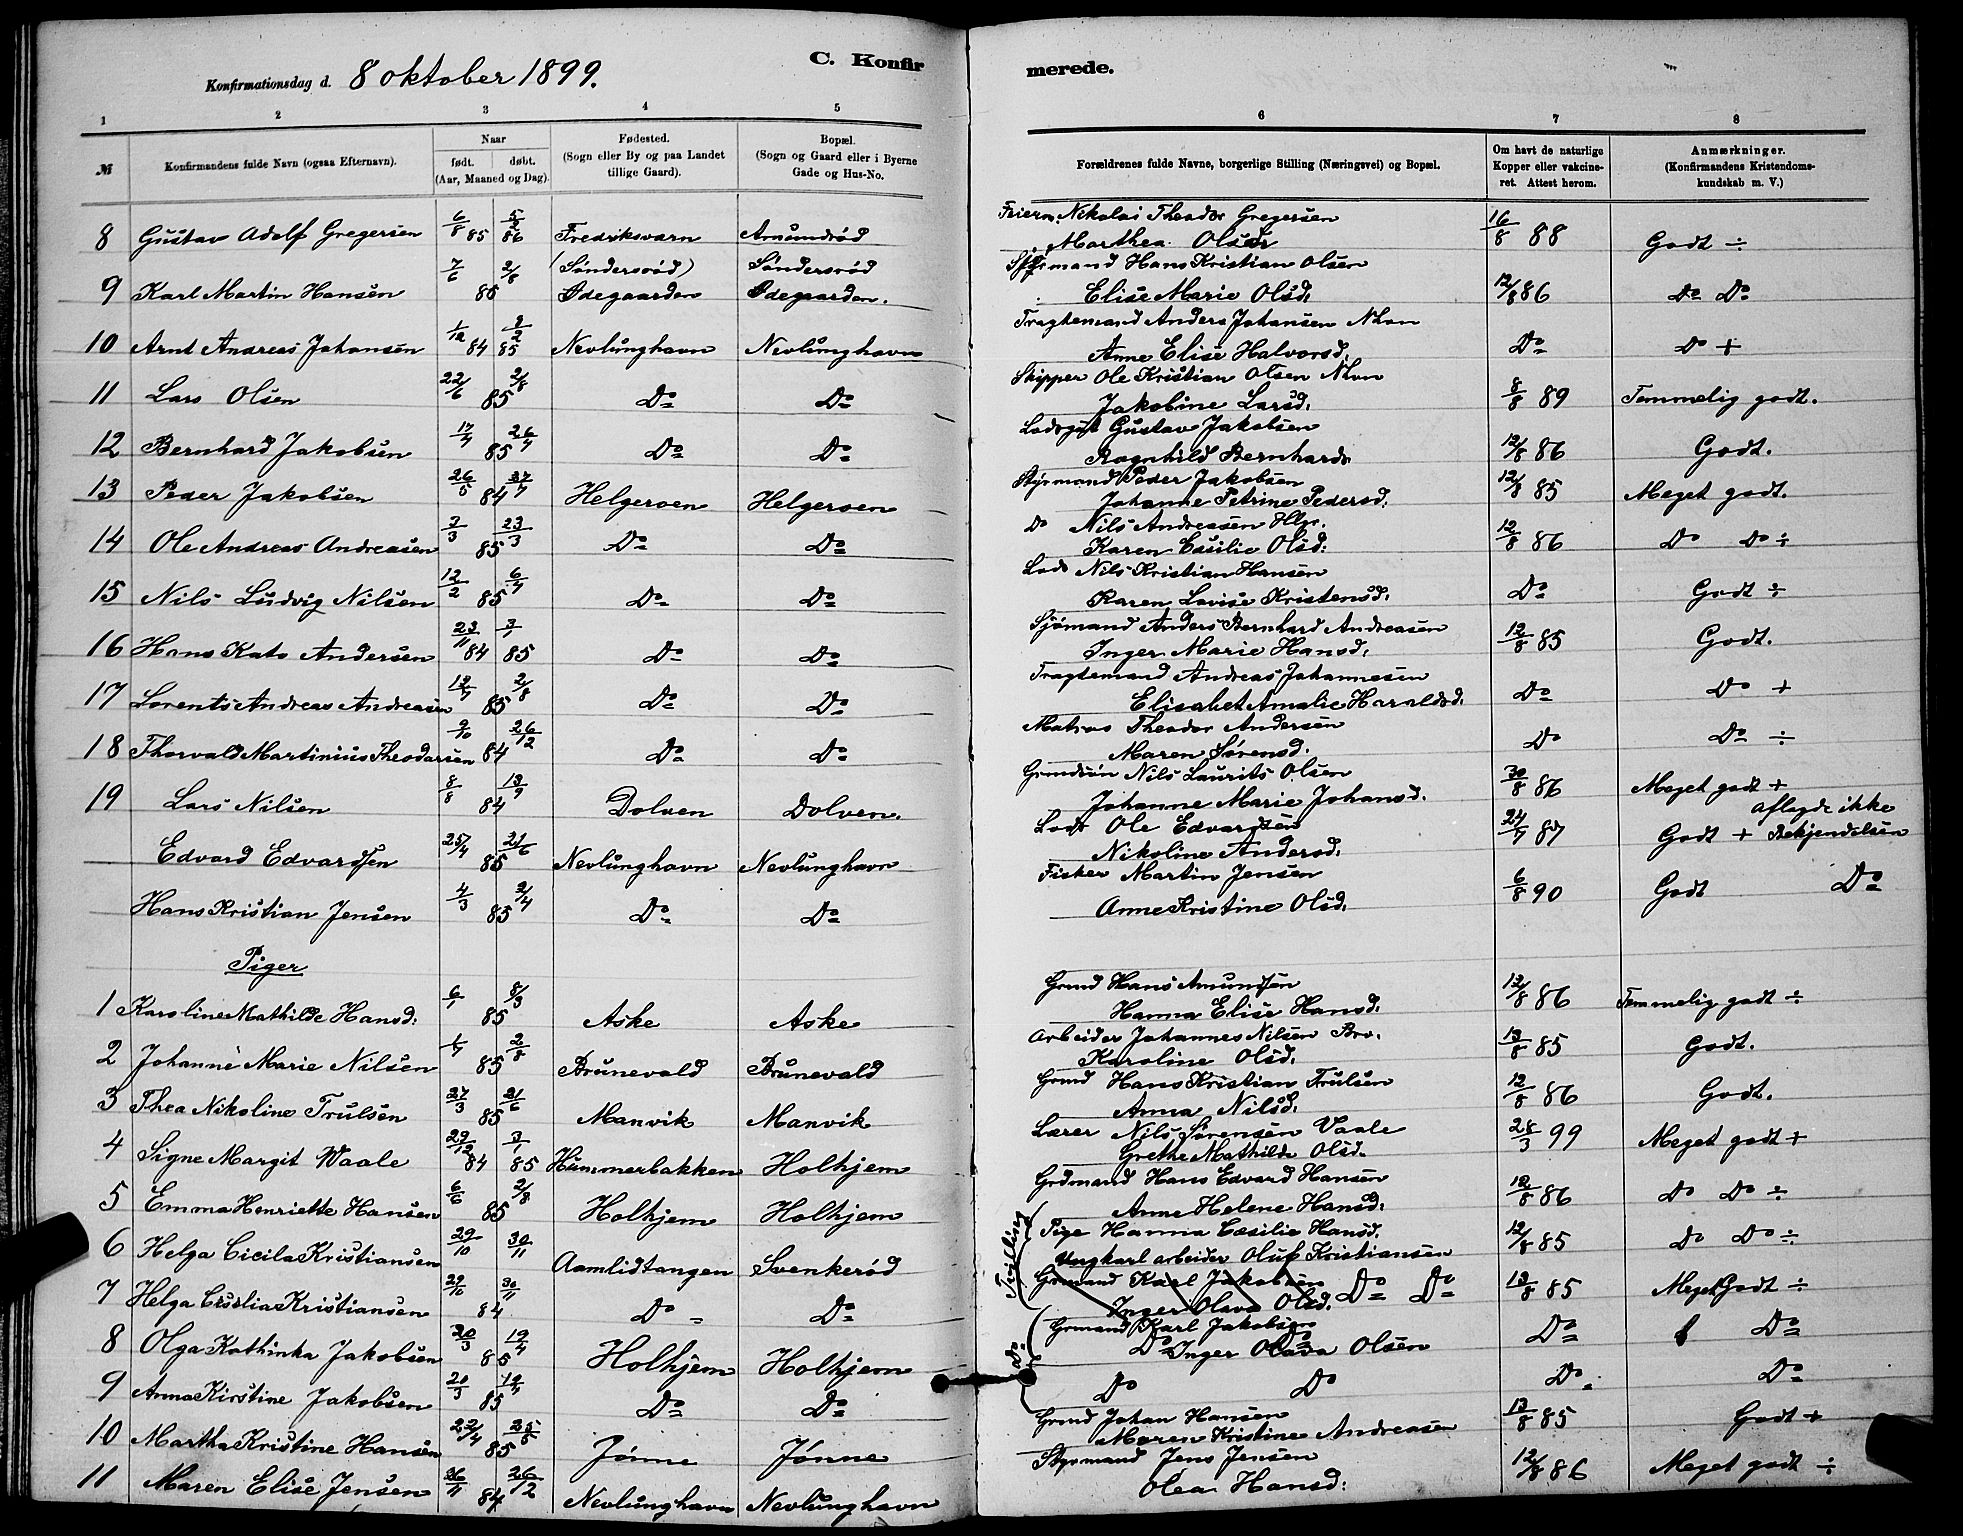 Konfirmationsdag d. 8 oktober 1899.
C. Konfirmerede.
1 2 3 4 5 6 7 8
№ Konfirmandens fulde Navn (ogsaa Efternavn). Naar født. døbt. (Aar, Maaned og Dag). Fødested. (Sogn eller By og paa Landet tillige Gaard). Bopæl. (Sogn og Gaard eller i Byerne Gade og Hus-No. Forældrenes fulde Navne, borgerlige Stilling (Næringsvei) og Bopæl. Om havt de naturlige Kopper eller vakcineret. Attest herom. Anmærkninger. (Konfirmandens Kristendomskundskab m. V.)
8 Gustav Adolf Gregersen 6/8 85 5/2 86 Fredriksværn Amundrød Nikolai Theodor Gregersen 16/8 88 Godt ÷
Marthea Olsdr
9 Karl Martin Hansen 7/6 2/8 85 (Søndersrød) Ødegaarden Søndersrød Ødegaarden. Styrmand Hans Kristian Olsen 12/8 86 Do Do
Elise Marie Olsd.
10 Arnt Andreas Johansen 1/12 84 2/2 85 Nevlunghavn Nevlunghavn Fragtemand Anders Johansen Nhvn Do Do +
Anne Elise Halvorsd.
11 Lars Olsen 22/6 2/8 85 Do Do Skipper Ole Kristian Olsen Nhvn 8/8 89 Temmelig godt.
Jakobine Larsd.
12 Bernhard Jakobsen 17/4 26/4 85 Do Do Gustav Jakobsen 12/8 86 Godt.
Ragnhild Bernhards
13 Peder Jakobsen 26/5 27/7 84 Helgeroen Helgeroen Styrmand Peder Jakobsen 12/8 85 Meget godt.
Johanne Petrine Pedersd.
14 Ole Andreas Andreasen 3/3 23/3 85 Do Do Do Nils Andreasen Hlg. 12/8 86 Do Do ÷
Karen Cæsilie Olsd:
15 Nils Ludvig Nilsen 12/2 6/4 85 Do Do Lods Nils Kristian Hansen Do Godt ÷
Karen Lovise Kristensd.
16 Hans Kato Andersen 23/11 84 3/1 85 Do Do Sjømand Anders Bernhard Andreasen 12/8 85 Godt.
Inger Marie Hansd.
17 Lorents Andreas Andreasen 12/7 2/8 85 Do Do Fragtemand Andreas Johannesen Do Do +
Elisabet Amalie Haraldsd.
18 Thorvald Martinius Theodorsen 9/10 26/12 84 Do Do Matros Theodor Andersen Do Do ÷
Maren Sørensd.
19 Lars Nilsen 8/8 13/9 84 Dolven Dolven. Nils Laurits Olsen 30/8 86 Meget godt +
Johanne Marie Johansd.
Edvard Edvardsen 25/4 21/6 85 Nevlunghavn Nevlunghavn Lods Ole Edvardsen 24/7 87 Godt + aflagde ikke Bekjendelsen
Nikoline Andersd.
Hans Kristian Jensen 4/3 2/4 85 Do Do Fisker Martin Jensen 6/8 90 Godt Do
Anne Kristine Olsd.
Piger
1 Karoline Mathilde Hansd: 6/1 8/3 85 Aske Aske Grmd Hans Amundsen 12/8 86 Temmelig godt ÷
Hanna Elise Hansd.
2 Johanne Marie Nilsen 1/7 2/8 85 Brunevald Brunevald Arbeider Johannes Nilsen Brv. 13/8 85 Godt.
Karoline Olsd.
3 Thea Nikoline Trulsen 27/3 21/6 85 Manvik Manvik Grmd Hans Kristian Trulsen 12/8 86 Godt.
Anna Nilsd.
4 Signe Margit Waale 29/12 84 3/1 85 Hummerbakken Holhjem Lærer Nils Sørensen Vaale 28/3 99 Meget godt +
Grethe Mathilde Olsd.
5 Emma Henriette Hansen 6/6 2/8 85 Holhjem Holhjem Grdmand Hans Edvard Hansen 12/8 86 Do Do ÷
Anne Helene Hansd.
6 Helga Cicila Kristiansen 29/10 30/11 Aamlidtangen Svenkerød Tvilling Pige Hanna Cæsilie Hansd. 12/8 85 Do Do ÷
Ungkarl arbeider Oluf Kristiansen
7 Helga Cesilia Kristiansen 29/10 30/11 84 Do Do Grmand Karl Jakobsen Do Do 13/8 85 Meget Godt ÷
Inger Olava Olsd.
8 Olga Kathinka Jakobsen 20/3 19/4 85 Holhjem Holhjem Do Grmand Karl Jakobsen Do Do
Do Inger Olava Olsen
9 Anna Kirstine Jakobsen 20/3 19/4 85 Do Do Do Do Do Do
10 Martha Kristine Hansen 22/4 25/5 85 Jønne Jønne Grmd Johan Hansen 13/8 85 Godt +
Maren Kristine Andreasen
11 Maren Elise Jensen 26/11 26/12 84 Nevlunghavn Nevlunghavn Styrmand Jens Jensen 12/8 86 Meget godt ÷
Olea Hansd: